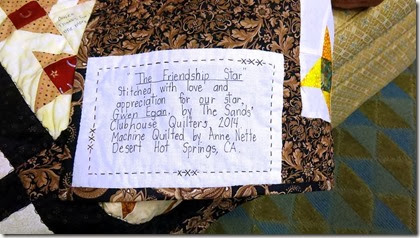 The Friendship Star
Stitched with love and
appreciation for our star,
Gwen Egan, by The Sands'
Clubhouse Quilters, 2014
Machine Quilted by Anne Nette
Desert Hot Springs, CA